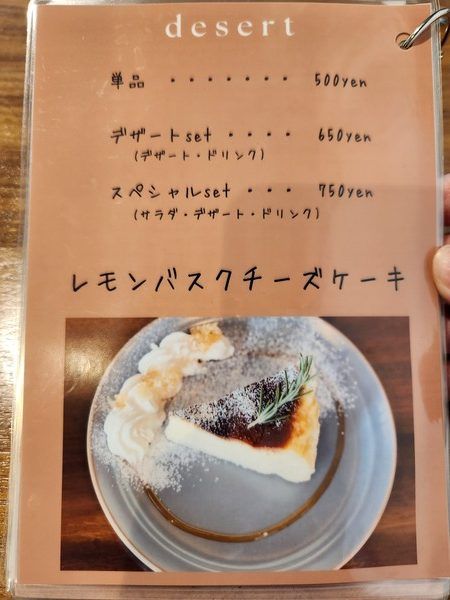 desert
単品 ・・・・・・・ 500yen
デザートset ・・・・ 650yen
(デザート・ドリンク)
スペシャルset ・・・ 750yen
(サラダ・デザート・ドリンク)
レモンバスクチーズケーキ